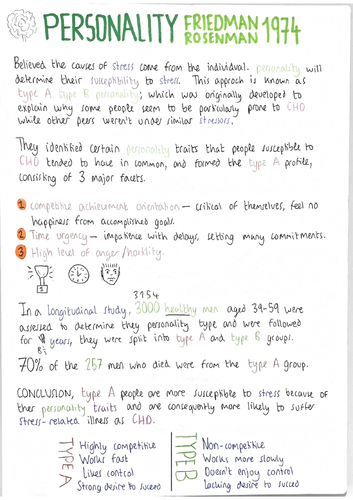 PERSONALITY FRIEDMAN ROSENMAN 1974
Believed the causes of stress come from the individual. personality will
determine their susceptibility to stress. This approch is known as
type A type B personality; which was originally developed to
explain why some people seem to be particularly prone to CHD
while other peers weren't under similar stressors.
They identified certain personality traits that people susceptible to
CHD tended to have in common, and formed the type A profile,
consisting of 3 major facets.
1 competitive achievement orientation – critical of themselves, feel no
happiness from accomplished goals.
2 Time urgency – impatience with delays, setting many commitments.
3 High level of anger/hostility.
3154
In a longitudinal study, 3000 healthy men aged 39-59 were
assessed to determine they personality type and were followed
for years, they were split into type A and type B groups.
8½
70% of the 257 men who died were from the type A group.
CONCLUSION, type A people are more susceptible to stress because of
ther personality traits and are consequently more likely to suffer
stress-related illness as CHD.
TYPE A
Highly competitive
Works fast
Likes control
Strong desire to succeed
TYPE B
Non-competitive
Works more slowly
Doesn't enjoy control
Lacking desire to succed